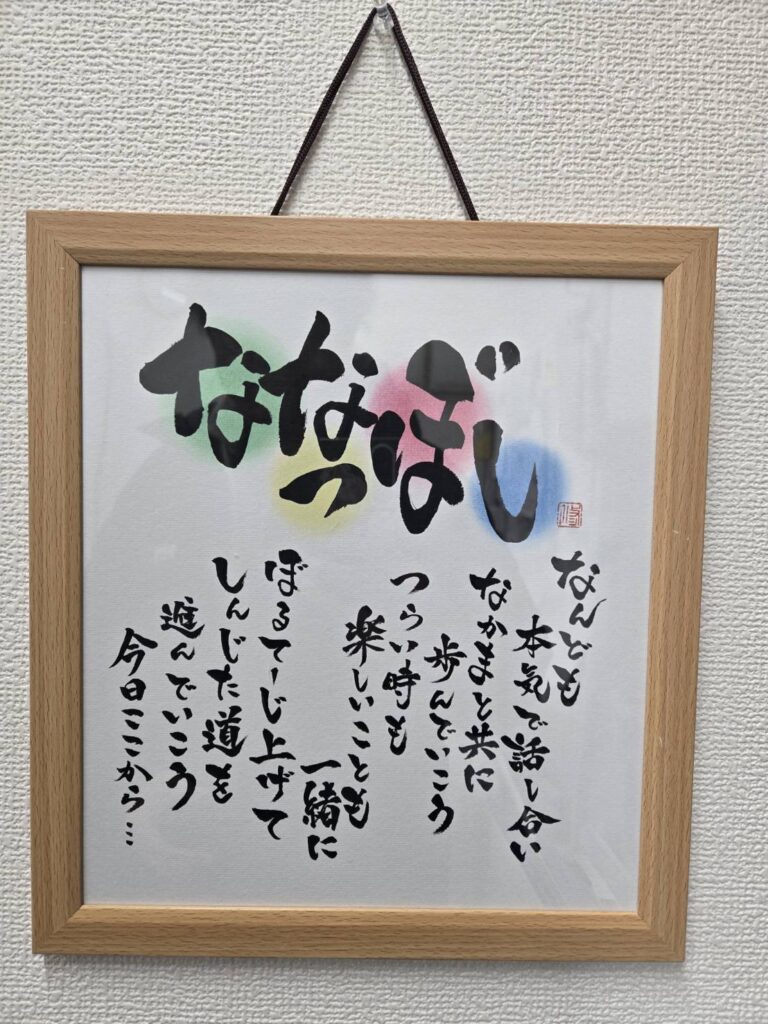 ななつぼし
なんども
本気で話し合い
なかまと共に
歩んでいこう
つらい時も
楽しいことも
一緒に
ぼるてーじ上げて
しんじた道を
進んでいこう
今日ここから…